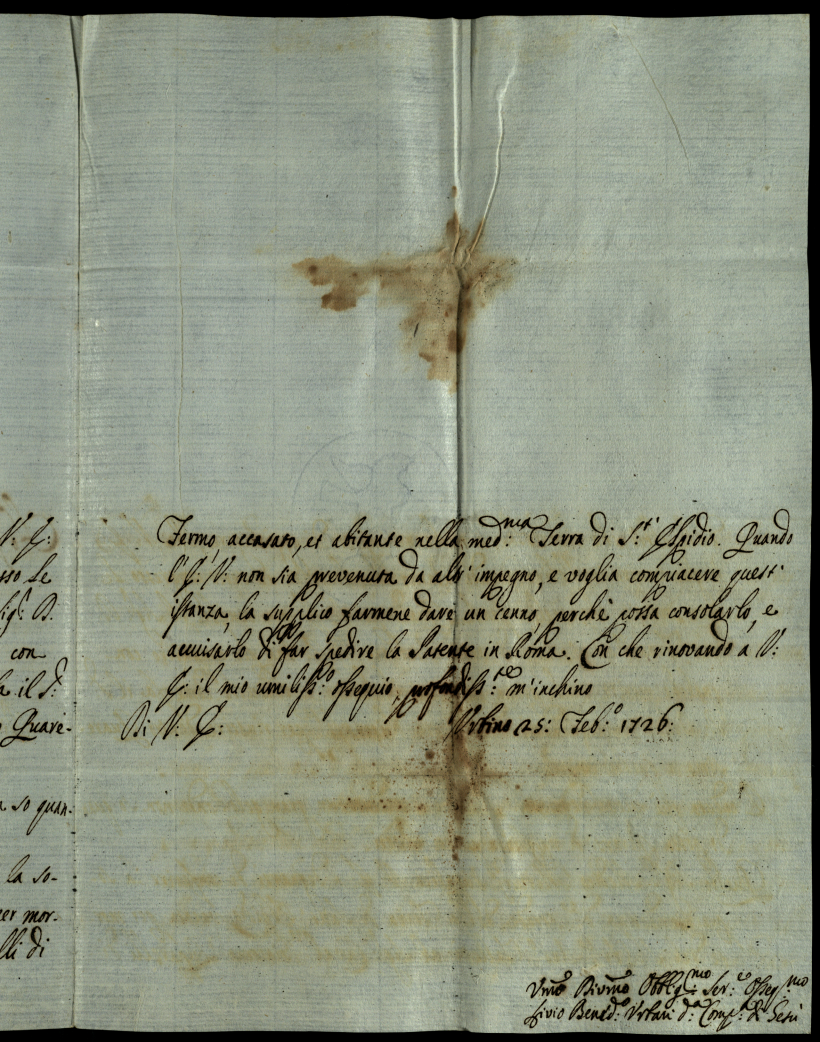 V: E:
sso le
sig.r D.
con
a il S:
Quare-
a so quan-
la so-
per mor-
lli di
Fermo, accasato, et abitante nella med:ma Terra di S.t' Elpidio. Quando
l'E: V: non sia prevenuta da altr' impegno, e voglia compiacere quest'
istanza, la supplico farmene dare un cenno, perchè possa consolarlo, e
avvisarlo di far spedire la Patente in Roma. Con che rinovando a V:
E: il mio umiliss:o ossequio, profondiss:te m'inchino
Di V: E: Urbino 25: Feb:o 1726:
Vmo Divmo Obblig:mo Ser:e Osseq:mo
Livio Bened:o Urbani d:a Comp:a di Gesù